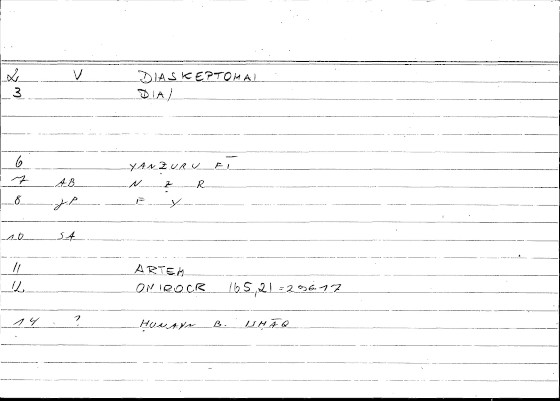 2 V DIASKEPTOMAI
3 DIA/
6 YANẒURU FĪ
7 AB N Ẓ R
8 JP F Y
10 SA
11 ARTEM
12 ONIROCR 165,21 = 296 17
14 ? ḤUNAYN B. ISḤĀQ